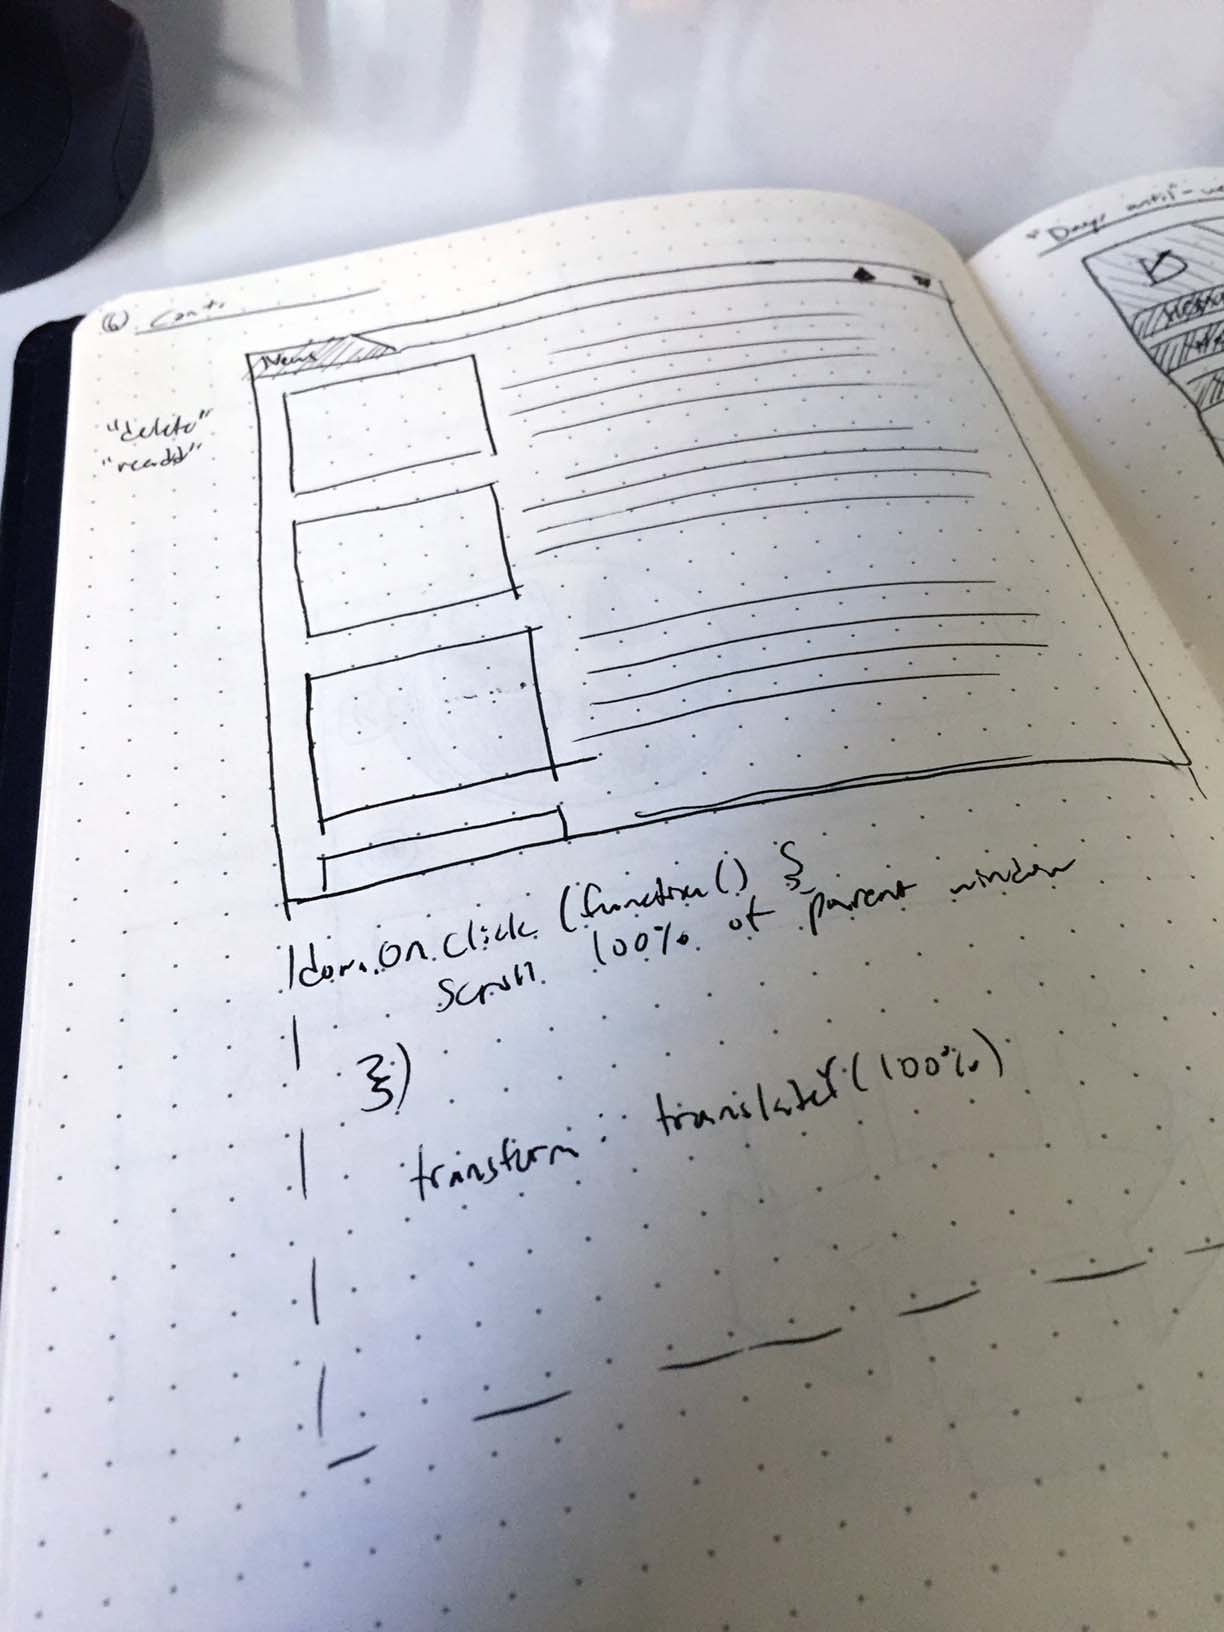 (6) Cont.
News
"delete"
"readd"
dom.on.click (function() {
scroll 100% of parent window
})
transform translateY(100%)
"Days until